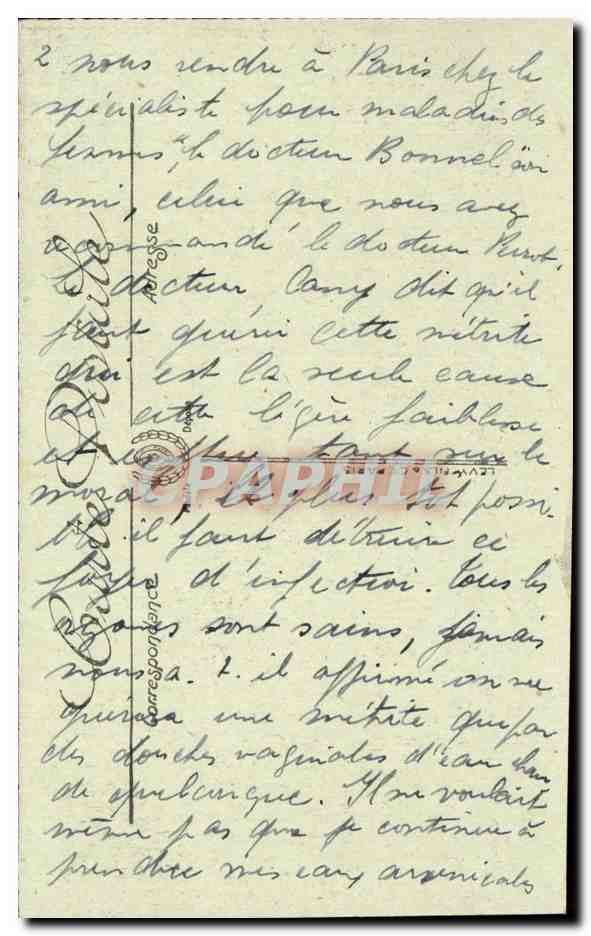 2 nous rendre à Paris chez le
spécialiste pour maladies de
femmes, le docteur Bonnel son
ami, celui que nous avez
recommandé le docteur Perrot.
Le docteur Camy dit qu'il
faut guérir cette métrite
qui est la seule cause
de cette légère faiblesse
et influe tant sur le
moral. Le plus tôt possi-
ble il faut détruire ce
foyer d'infection. Tous les
organes sont sains, jamais
nous a-t-il affirmé on ne
guérira une métrite que par
des douches vaginales d'eau
de. Il ne voulait
même pas que je continue à
prendre mes eaux arsenicales
Carte Postale
Correspondance
Adresse
LEVY FILS & Cie PARIS
Déposé
CPAPHIL